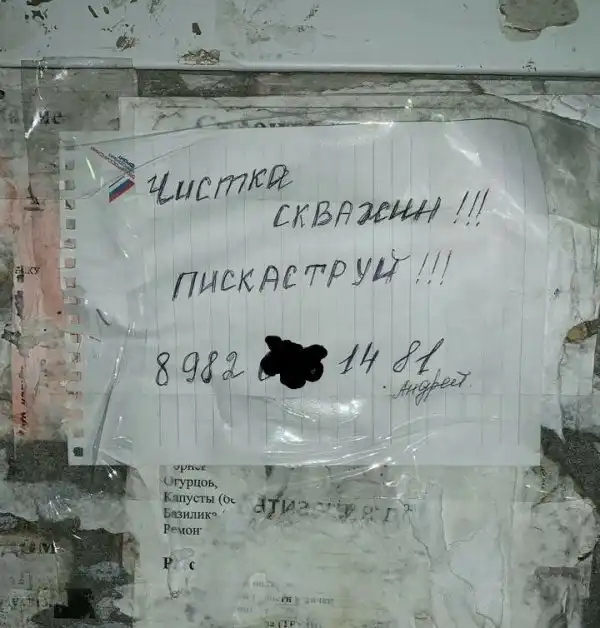 Чистка
СКВАЖИН !!!
ПИСКАСТРУЙ !!!
8 982 14 81
Андрей
Огурцов,
Капусты
Базилика
Ремон